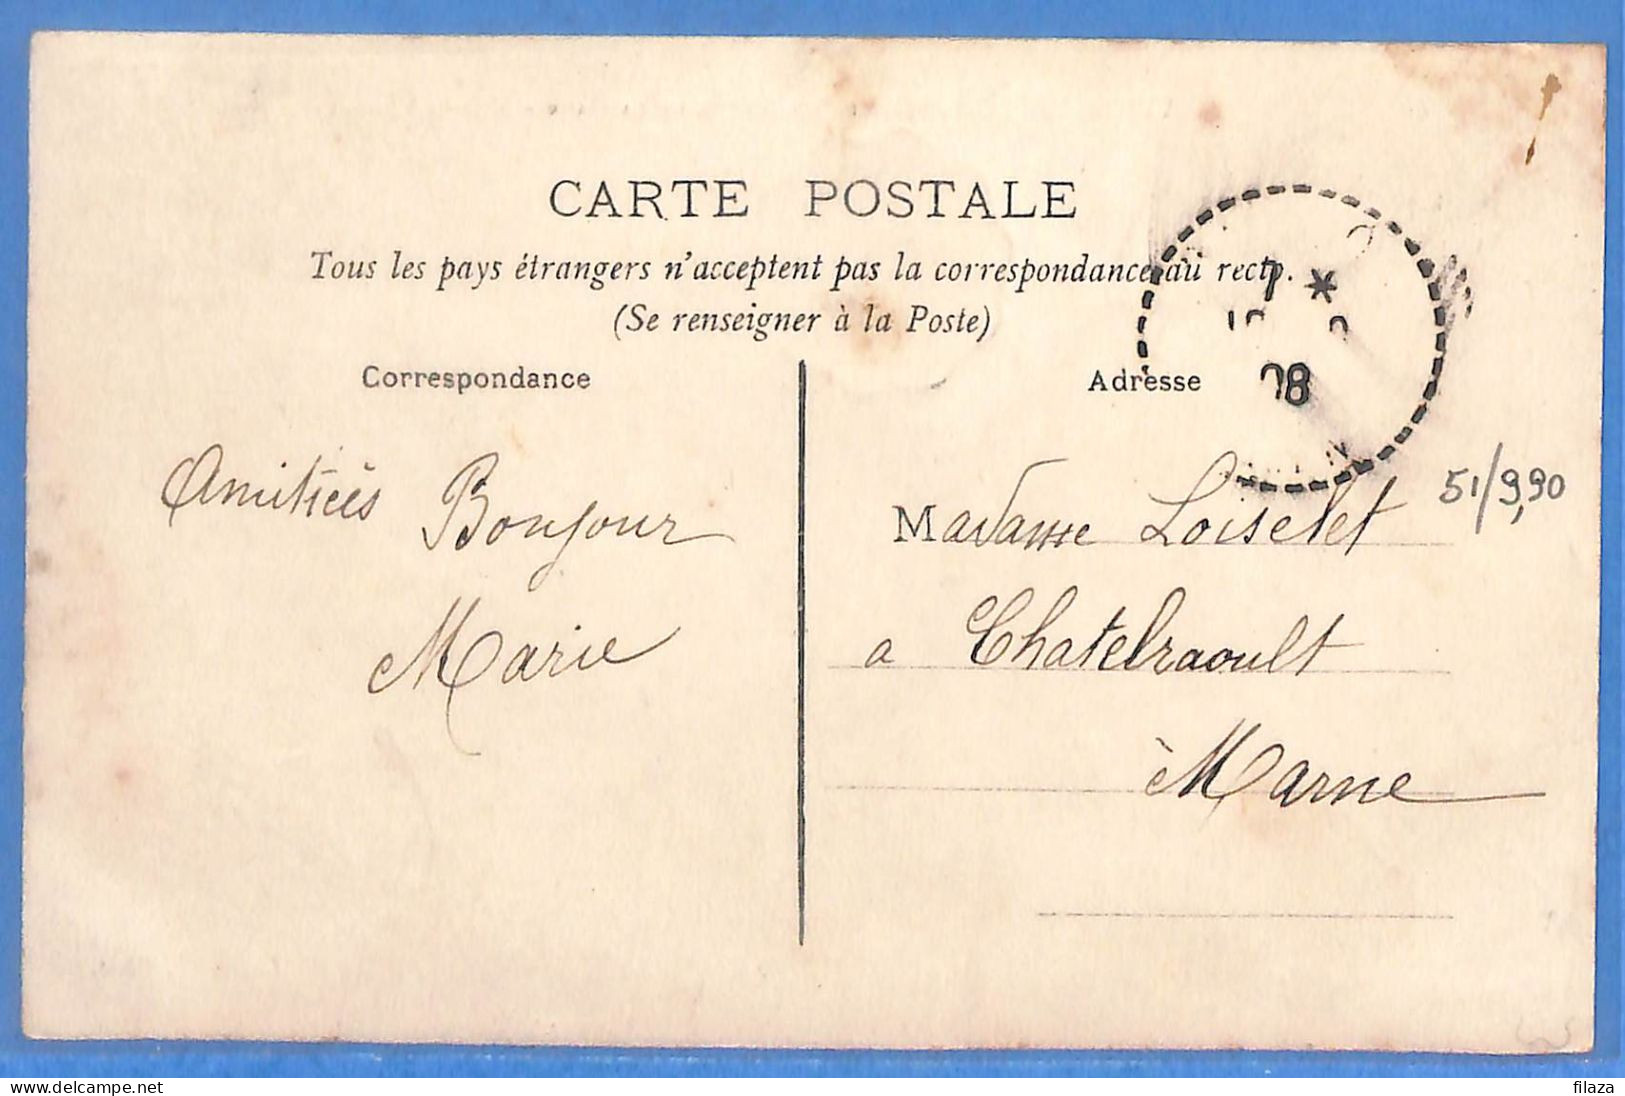 CARTE POSTALE
Tous les pays étrangers n'acceptent pas la correspondance au recto.
(Se renseigner à la Poste)
Correspondance
Adresse
7 *
08
Amitiés Bonjour
Marie
Madame Loiselet
51/9,90
a Chatelraoult
Marne
www.delcampe.net
filaza